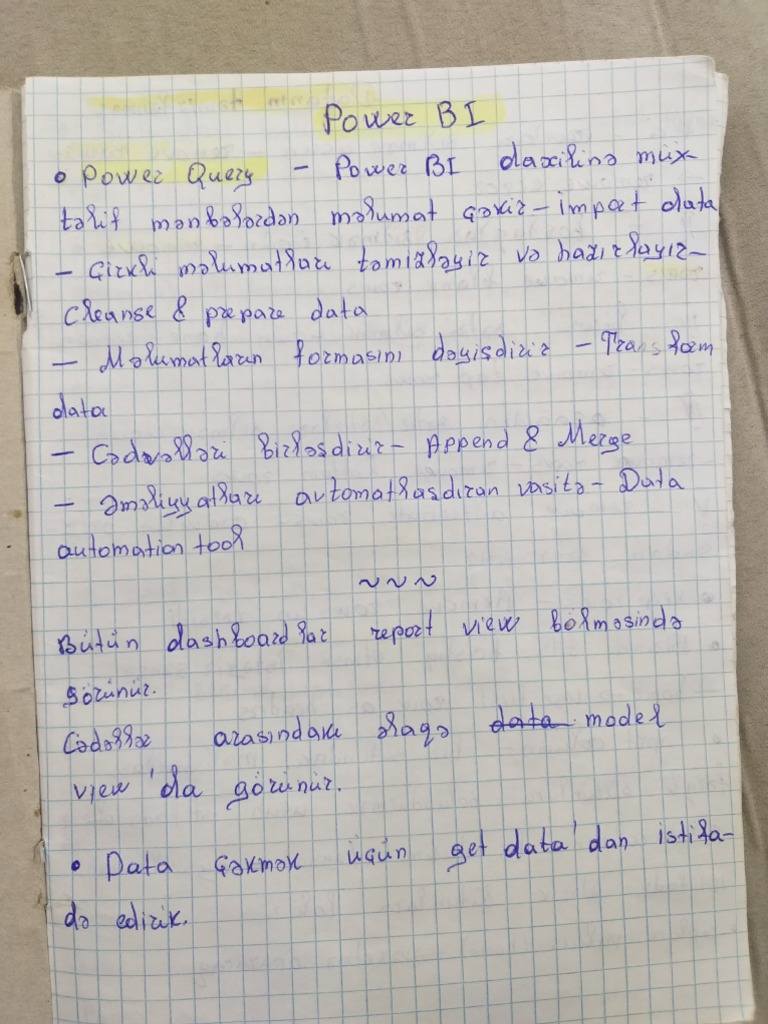 Power BI
• Power Query – Power BI daxilinə müx-
təlif mənbələrdən məlumat çəkir – import data
– Çirkli məlumatları təmizləyir və hazırlayır –
Cleanse & prepare data
– Məlumatların formasını dəyişdirir – Transform
data
– Cədvəlləri birləşdirir – Append & Merge
– Əməliyyatları avtomatlaşdıran vasitə – Data
automation tool
~ ~ ~
Bütün dashboardlar report view bölməsində
görünür.
Cədəllər arasındakı əlaqə data model
view'da görünür.
• Data çəkmək üçün get data'dan istifa-
də edirik.